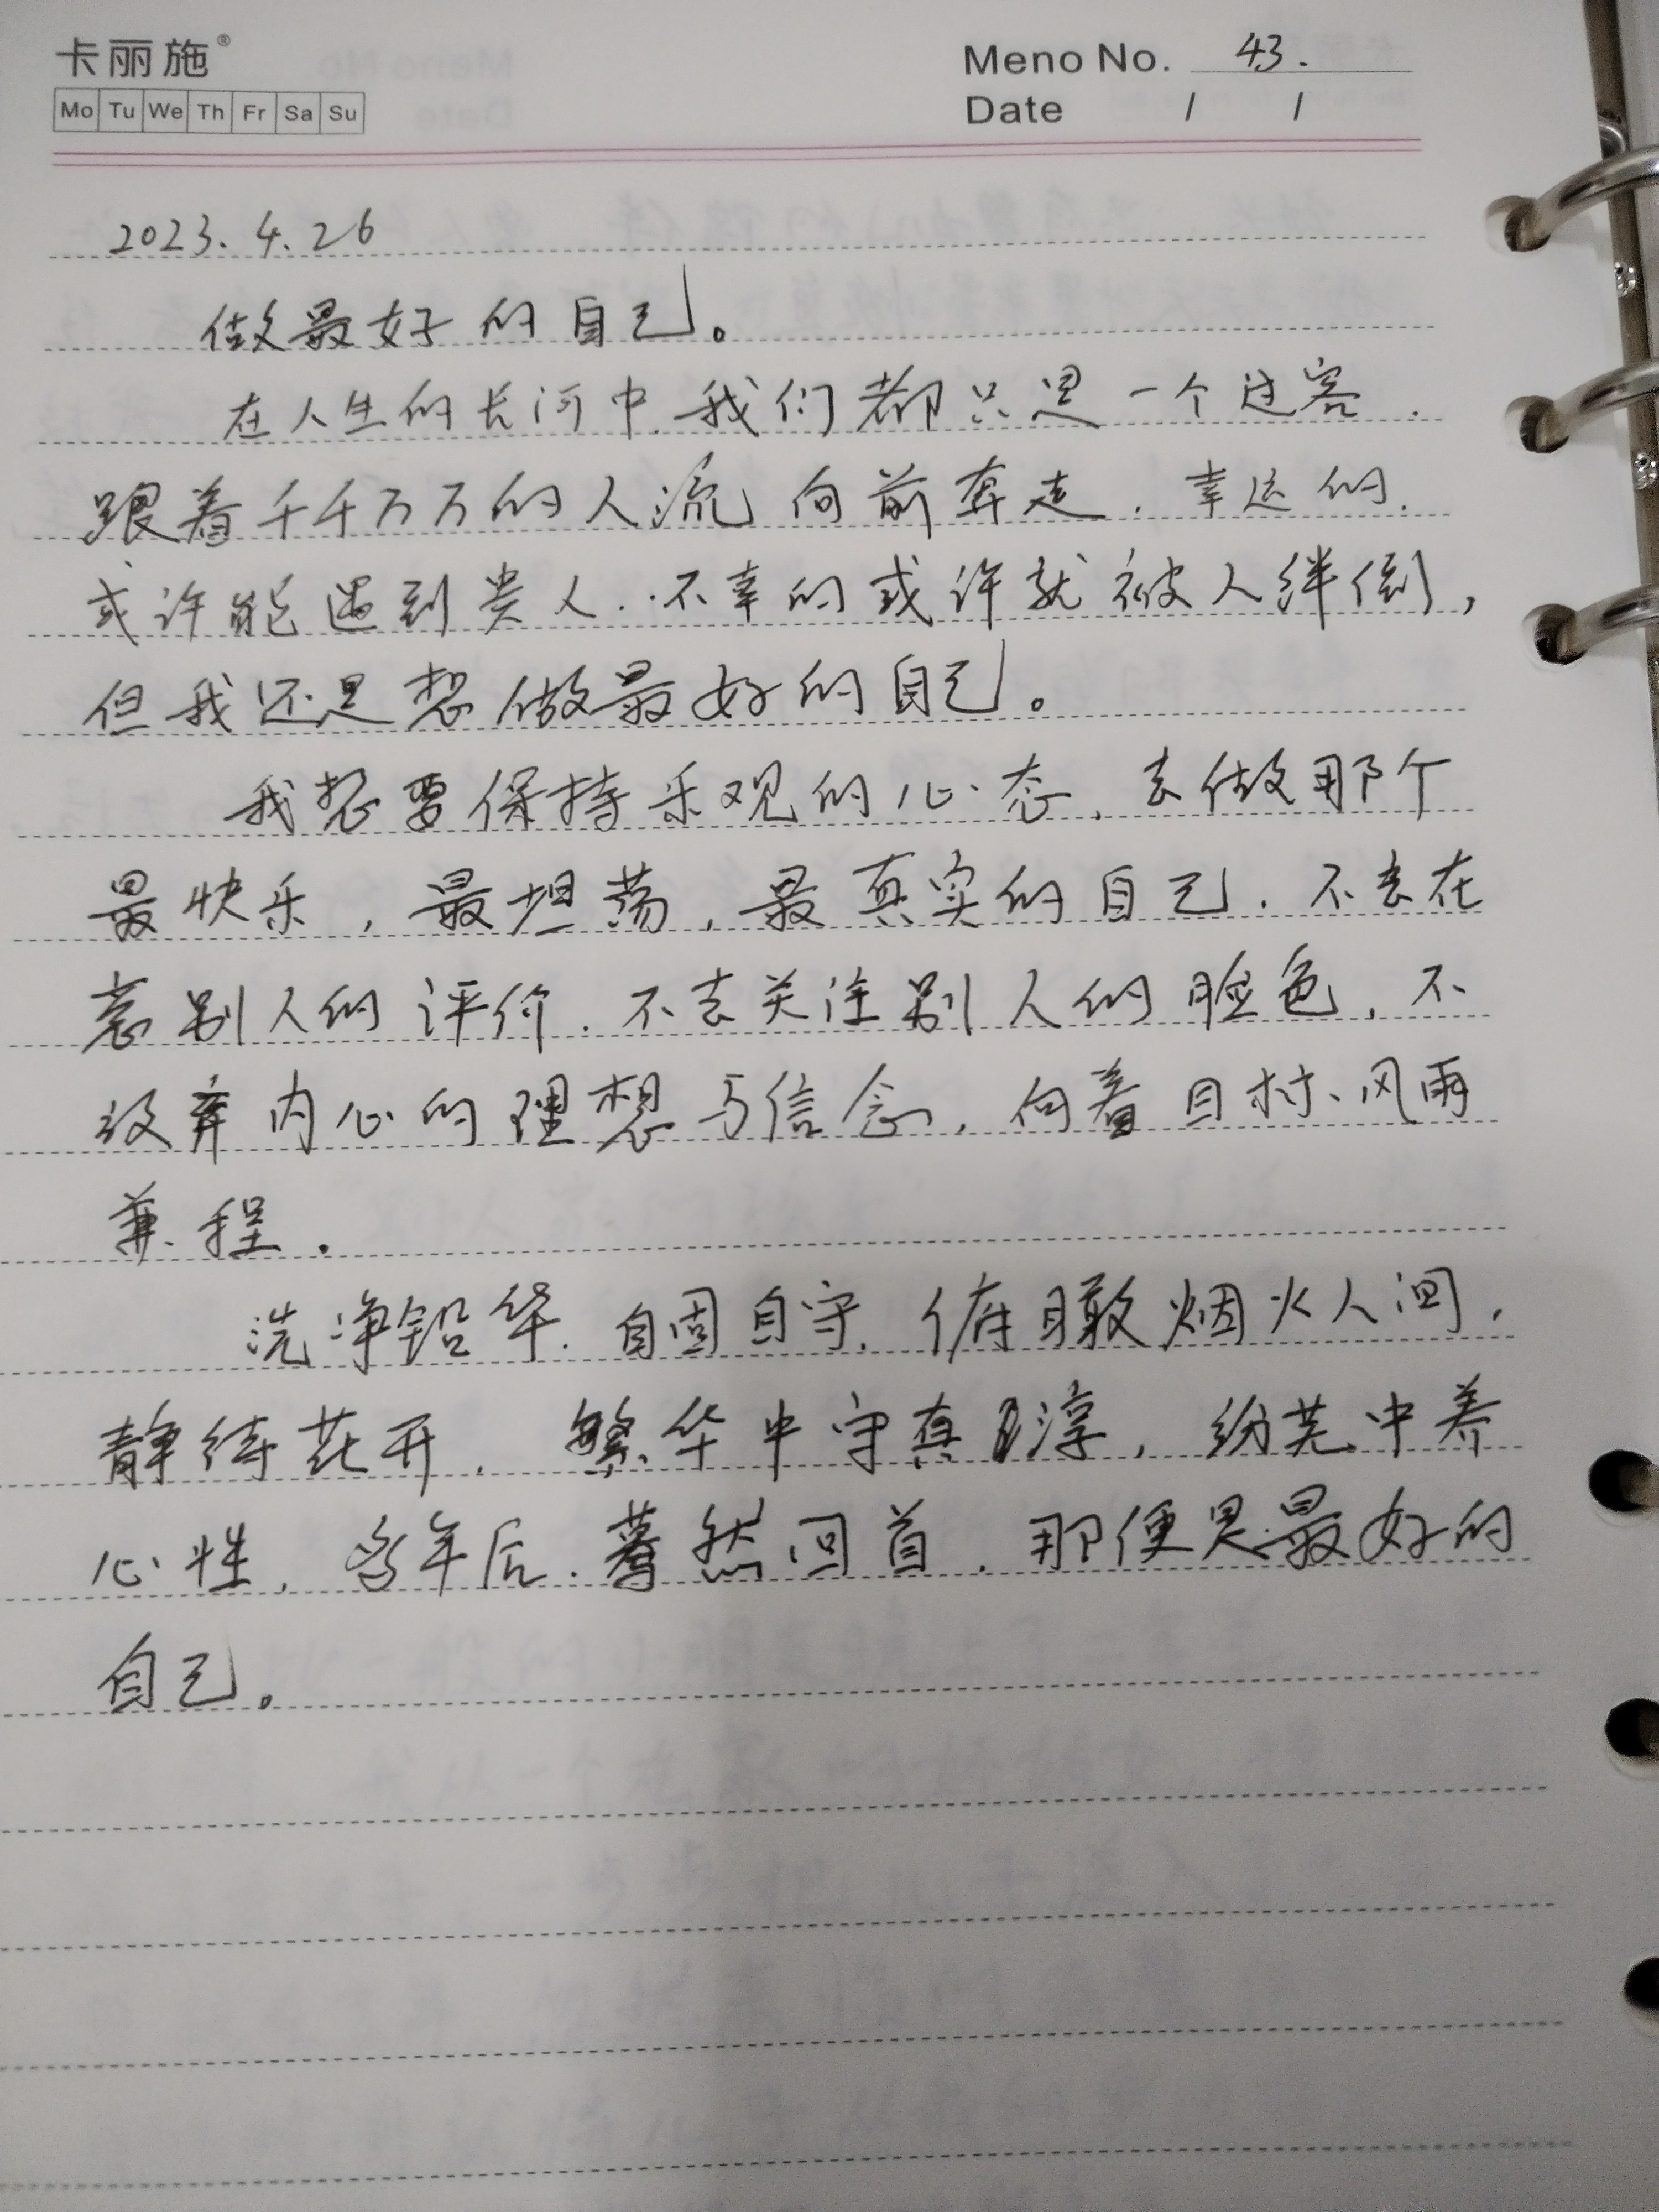 卡丽施®
Meno No. 43.
Mo Tu We Th Fr Sa Su
Date / /
2023.4.26
做最好的自己。
在人生的长河中.我们都只是一个过客.
跟着千千万万的人流向前奔走.幸运的.
或许能遇到贵人..不幸的或许就被人绊倒,
但我还是想做最好的自己。
我想要保持乐观的心态,去做那个
最快乐,最坦荡,最真实的自己.不去在
意别人的评价.不去关注别人的脸色,不
放弃内心的理想与信念,向着目标、风雨
兼程.
洗净铅华.自固自守,俯瞰烟火人间,
静待花开.繁华中守真淳,纷芜中养
心性,多年后.蓦然回首.那便是最好的
自己。